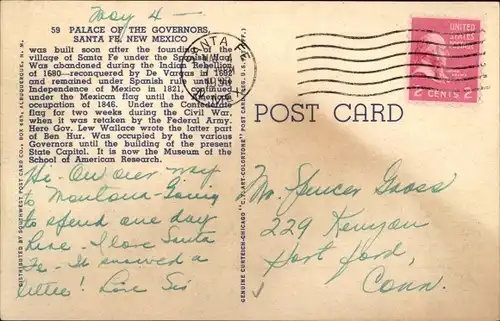 May 4 —
59 PALACE OF THE GOVERNORS,
SANTA FE, NEW MEXICO
was built soon after the founding of the
village of Santa Fe under the Spanish flag.
Was abandoned during the Indian Rebellion
of 1680—reconquered by De Vargas in 1692
and remained under Spanish rule until the
Independence of Mexico in 1821, continued
under the Mexican flag until the American
occupation of 1846. Under the Confederate
flag for two weeks during the Civil War,
when it was retaken by the Federal Army.
Here Gov. Lew Wallace wrote the latter part
of Ben Hur. Was occupied by the various
Governors until the building of the present
State Capitol. It is now the Museum of the
School of American Research.
Hi - On our way
to Montana - Going
to spend one day
here - I love Santa
Fe - It snowed a
little! Love Sis
DISTRIBUTED BY SOUTHWEST POST CARD CO., BOX 685, ALBUQUERQUE, N. M.
GENUINE CURTEICH-CHICAGO "C.T. ART-COLORTONE" POST CARD
SANTA FE
UNITED
STATES
POSTAGE
2 CENTS 2
POST CARD
Mr. Spencer Gross
229 Kenyon
Hartford,
Conn.